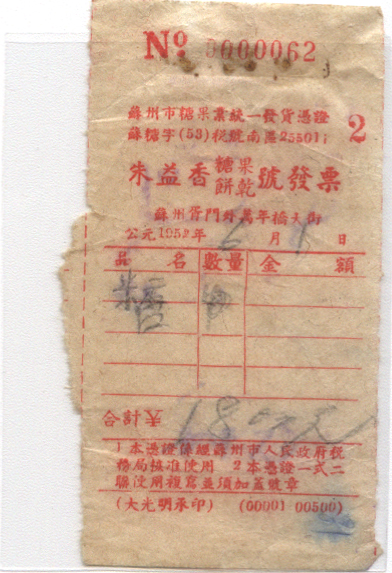 No 0000062
蘇州市糖果業統一發貨憑證
蘇糖字(53)稅號南区25501
2
朱益香糖果餅乾號發票
蘇州胥門外萬年橋大街
公元1952年6月1日
品名 數量 金額
糖
合計 1800元
1本憑證係經蘇州市人民政府稅
務局核准使用 2本憑證一式二
聯使用複寫並須加蓋號章
(大光明承印) (00001 00500)